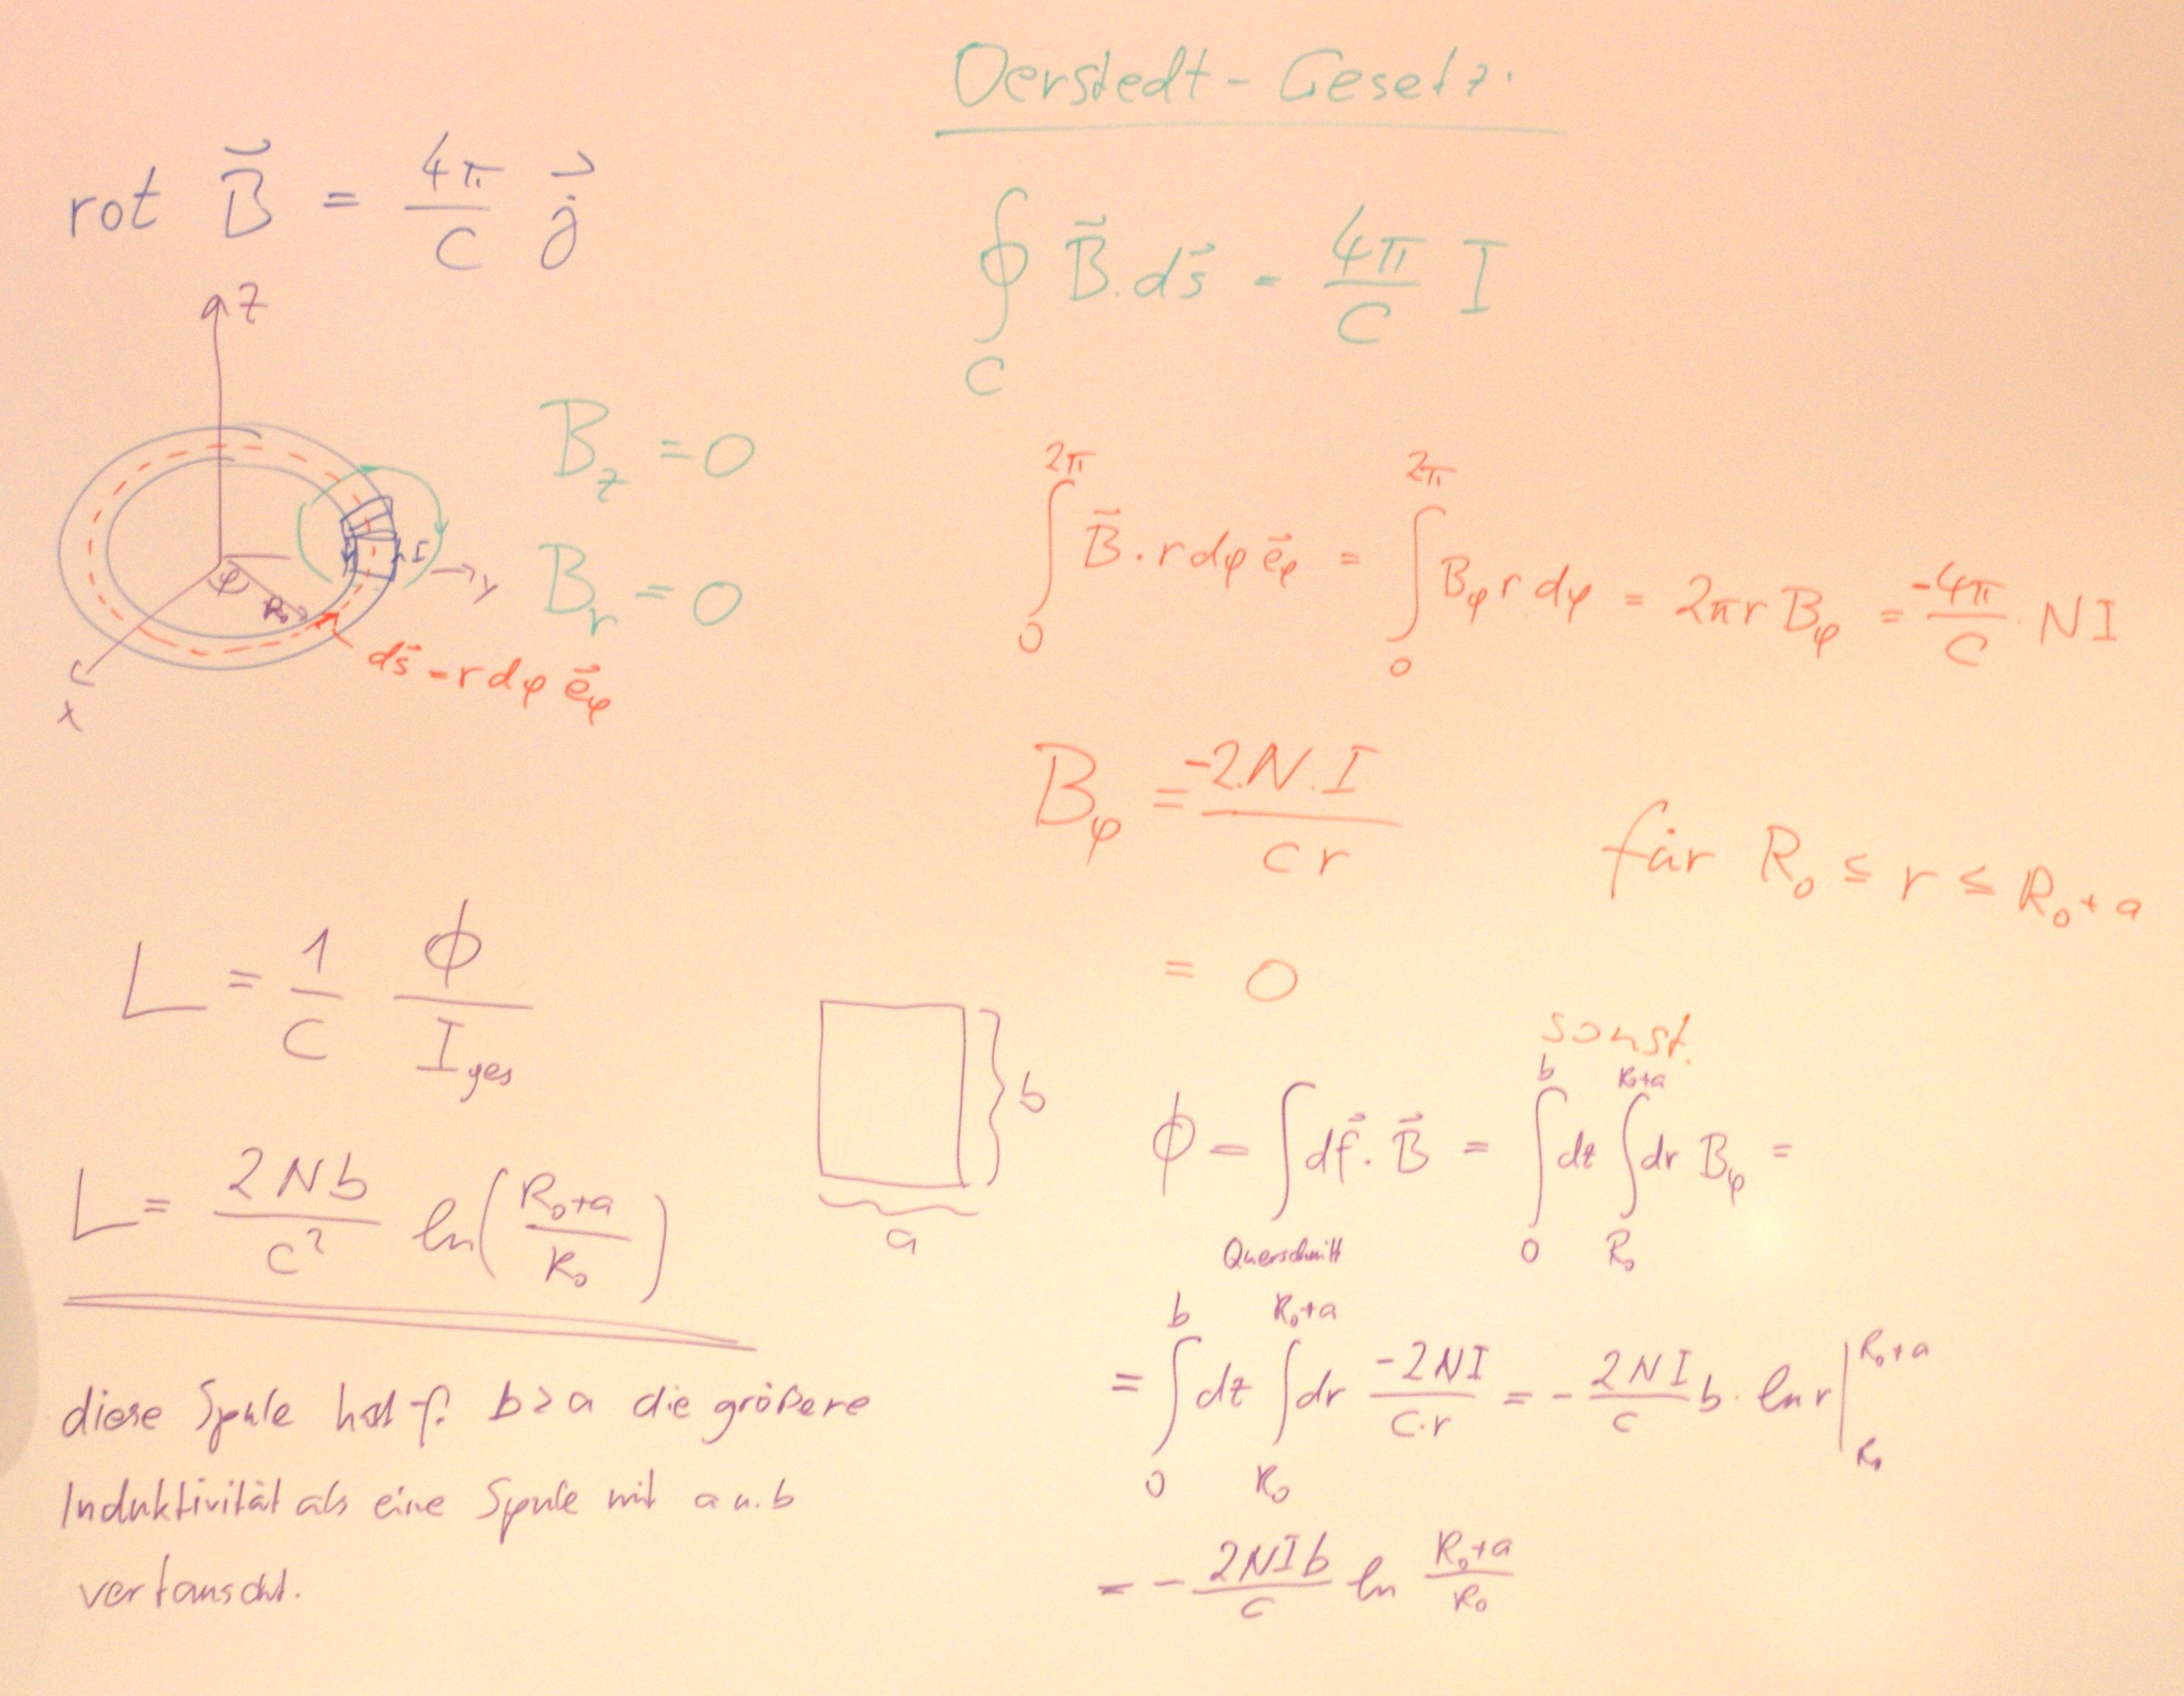 Oerstedt-Gesetz:
rot B⃗ = 4π/c j⃗
∮_C B⃗ . ds⃗ = 4π/c I
z
B_z = 0
B_r = 0
I
y
φ
R₀
x
ds⃗ = r dφ e⃗_φ
∫₀^2π B⃗ · r dφ e⃗_φ = ∫₀^2π B_φ r dφ = 2πr B_φ = -4π/c · NI
B_φ = -2.N.I / cr für R₀ ≤ r ≤ R₀+a
= 0 sonst.
L = 1/c ϕ/I_ges
b
a
ϕ = ∫_Querschnitt df⃗ · B⃗ = ∫₀^b dz ∫_R₀^R₀+a dr B_φ =
L = 2Nb/c² ln(R₀+a / R₀)
= ∫₀^b dz ∫_R₀^R₀+a dr -2NI/c·r = - 2NI/c b · ln r |_R₀^R₀+a
= - 2NIb/c ln R₀+a/R₀
diese Spule hat f. b>a die größere
Induktivität als eine Spule mit a u. b
vertauscht.